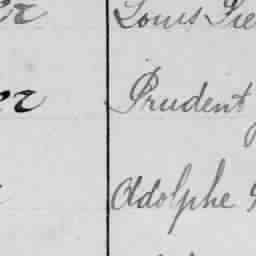 er Louis
er Prudent
Adolphe